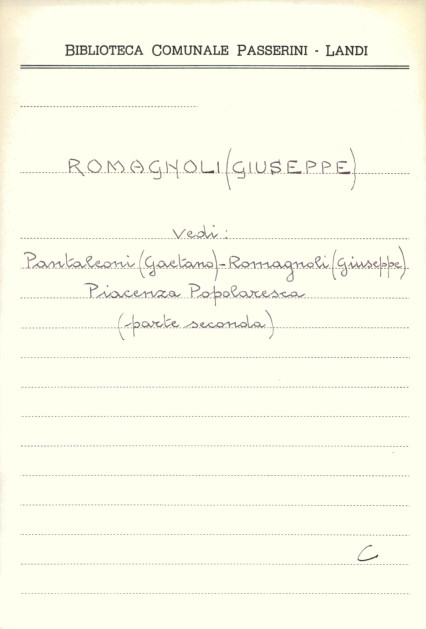 BIBLIOTECA COMUNALE PASSERINI - LANDI
ROMAGNOLI (GIUSEPPE)
Vedi:
Pantaleoni (Gaetano) - Romagnoli (Giuseppe)
Piacenza Popolaresca
(parte seconda)
C